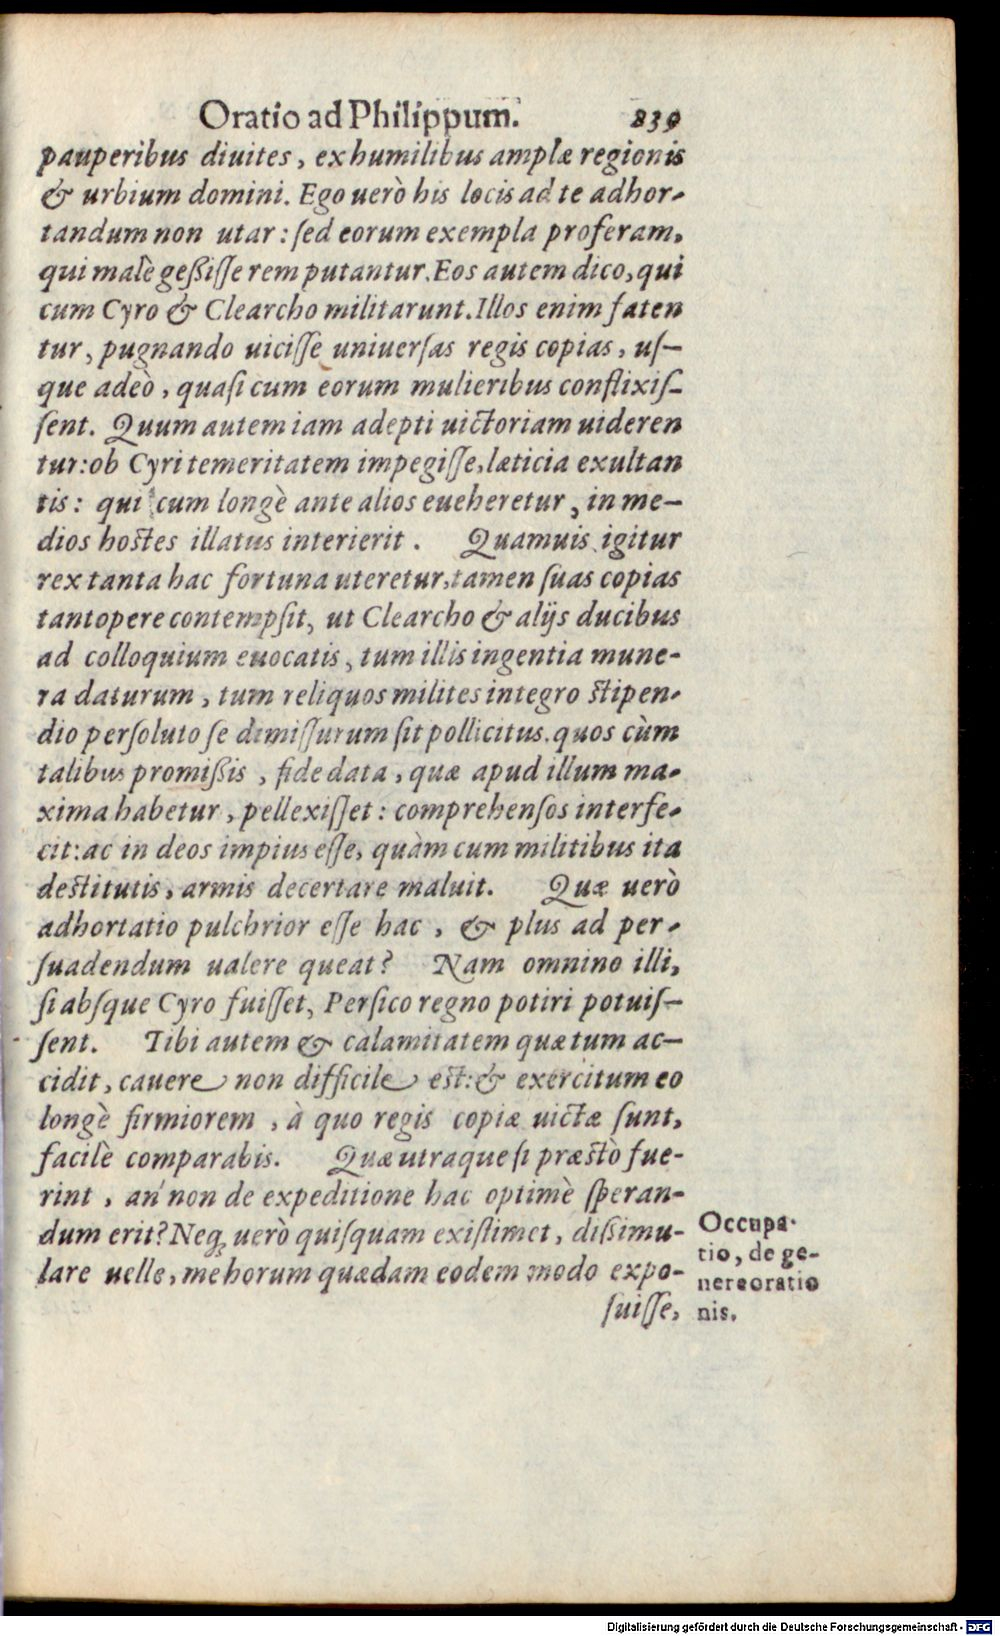 Oratio ad Philippum. 839
pauperibus diuites, ex humilibus amplæ regionis
& urbium domini. Ego uerò his locis ad te adhor-
tandum non utar: ſed eorum exempla proferam,
qui malè geßiſſe rem putantur. Eos autem dico, qui
cum Cyro & Clearcho militarunt. Illos enim faten
tur, pugnando uiciſſe uniuerſas regis copias, uſ-
que adeò, quaſi cum eorum mulieribus conflixiſ-
ſent. Quum autem iam adepti uictoriam uideren
tur: ob Cyri temeritatem impegiſſe, læticia exultan
tis: qui cum longè ante alios eueheretur, in me-
dios hostes illatus interierit. Quamuis igitur
rex tanta hac fortuna uteretur, tamen ſuas copias
tantopere contempſit, ut Clearcho & alijs ducibus
ad colloquium euocatis, tum illis ingentia mune-
ra daturum, tum reliquos milites integro stipen-
dio perſoluto ſe dimiſſurum ſit pollicitus. quos cùm
talibus promißis, fide data, quæ apud illum ma-
xima habetur, pellexiſſet: comprehenſos interfe-
cit: ac in deos impius eſſe, quàm cum militibus ita
destitutis, armis decertare maluit. Quæ uerò
adhortatio pulchrior eſſe hac, & plus ad per-
ſuadendum ualere queat? Nam omnino illi,
ſi abſque Cyro fuiſſet, Perſico regno potiri potuiſ-
ſent. Tibi autem & calamitatem quæ tum ac-
cidit, cauere non difficile est: & exercitum eo
longè firmiorem, à quo regis copiæ uictæ ſunt,
facilè comparabis. Quæ utraque ſi præstò fue-
rint, an non de expeditione hac optimè ſperan-
dum erit? Neq; uerò quiſquam exiſtimet, dißimu-
lare uelle, me horum quædam eodem modo expo-
ſuiſſe,
Occupa-
tio, de ge-
nere oratio
nis.
Digitalisierung gefördert durch die Deutsche Forschungsgemeinschaft - DFG